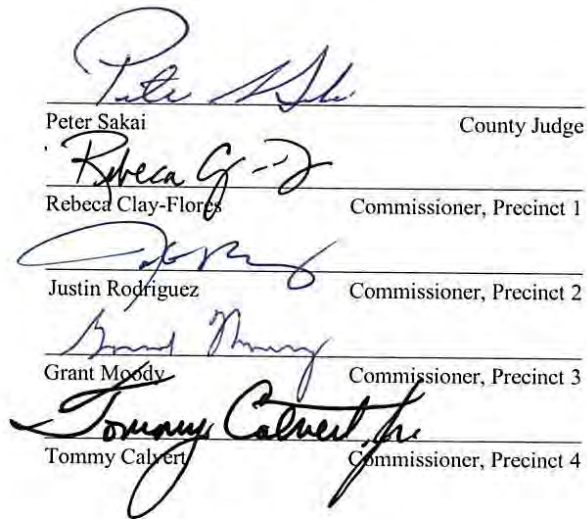 Pete Sakai
Peter Sakai County Judge
Rebeca
Rebeca Clay-Flores Commissioner, Precinct 1
Justin Rodriguez Commissioner, Precinct 2
Grant Moody
Grant Moody Commissioner, Precinct 3
Tommy Calvert, Jr.
Tommy Calvert Commissioner, Precinct 4